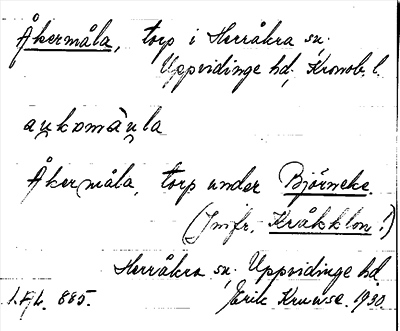 Åkermåla, torp i Herråkra sn,
Uppvidinge hd, Kronob. l.
aukomàula
Åkermåla, torp under Björneke.
(Jmfr. Kråkklon!)
Herråkra sn, Uppvidinge hd
1930
885. Erik Kruuse.